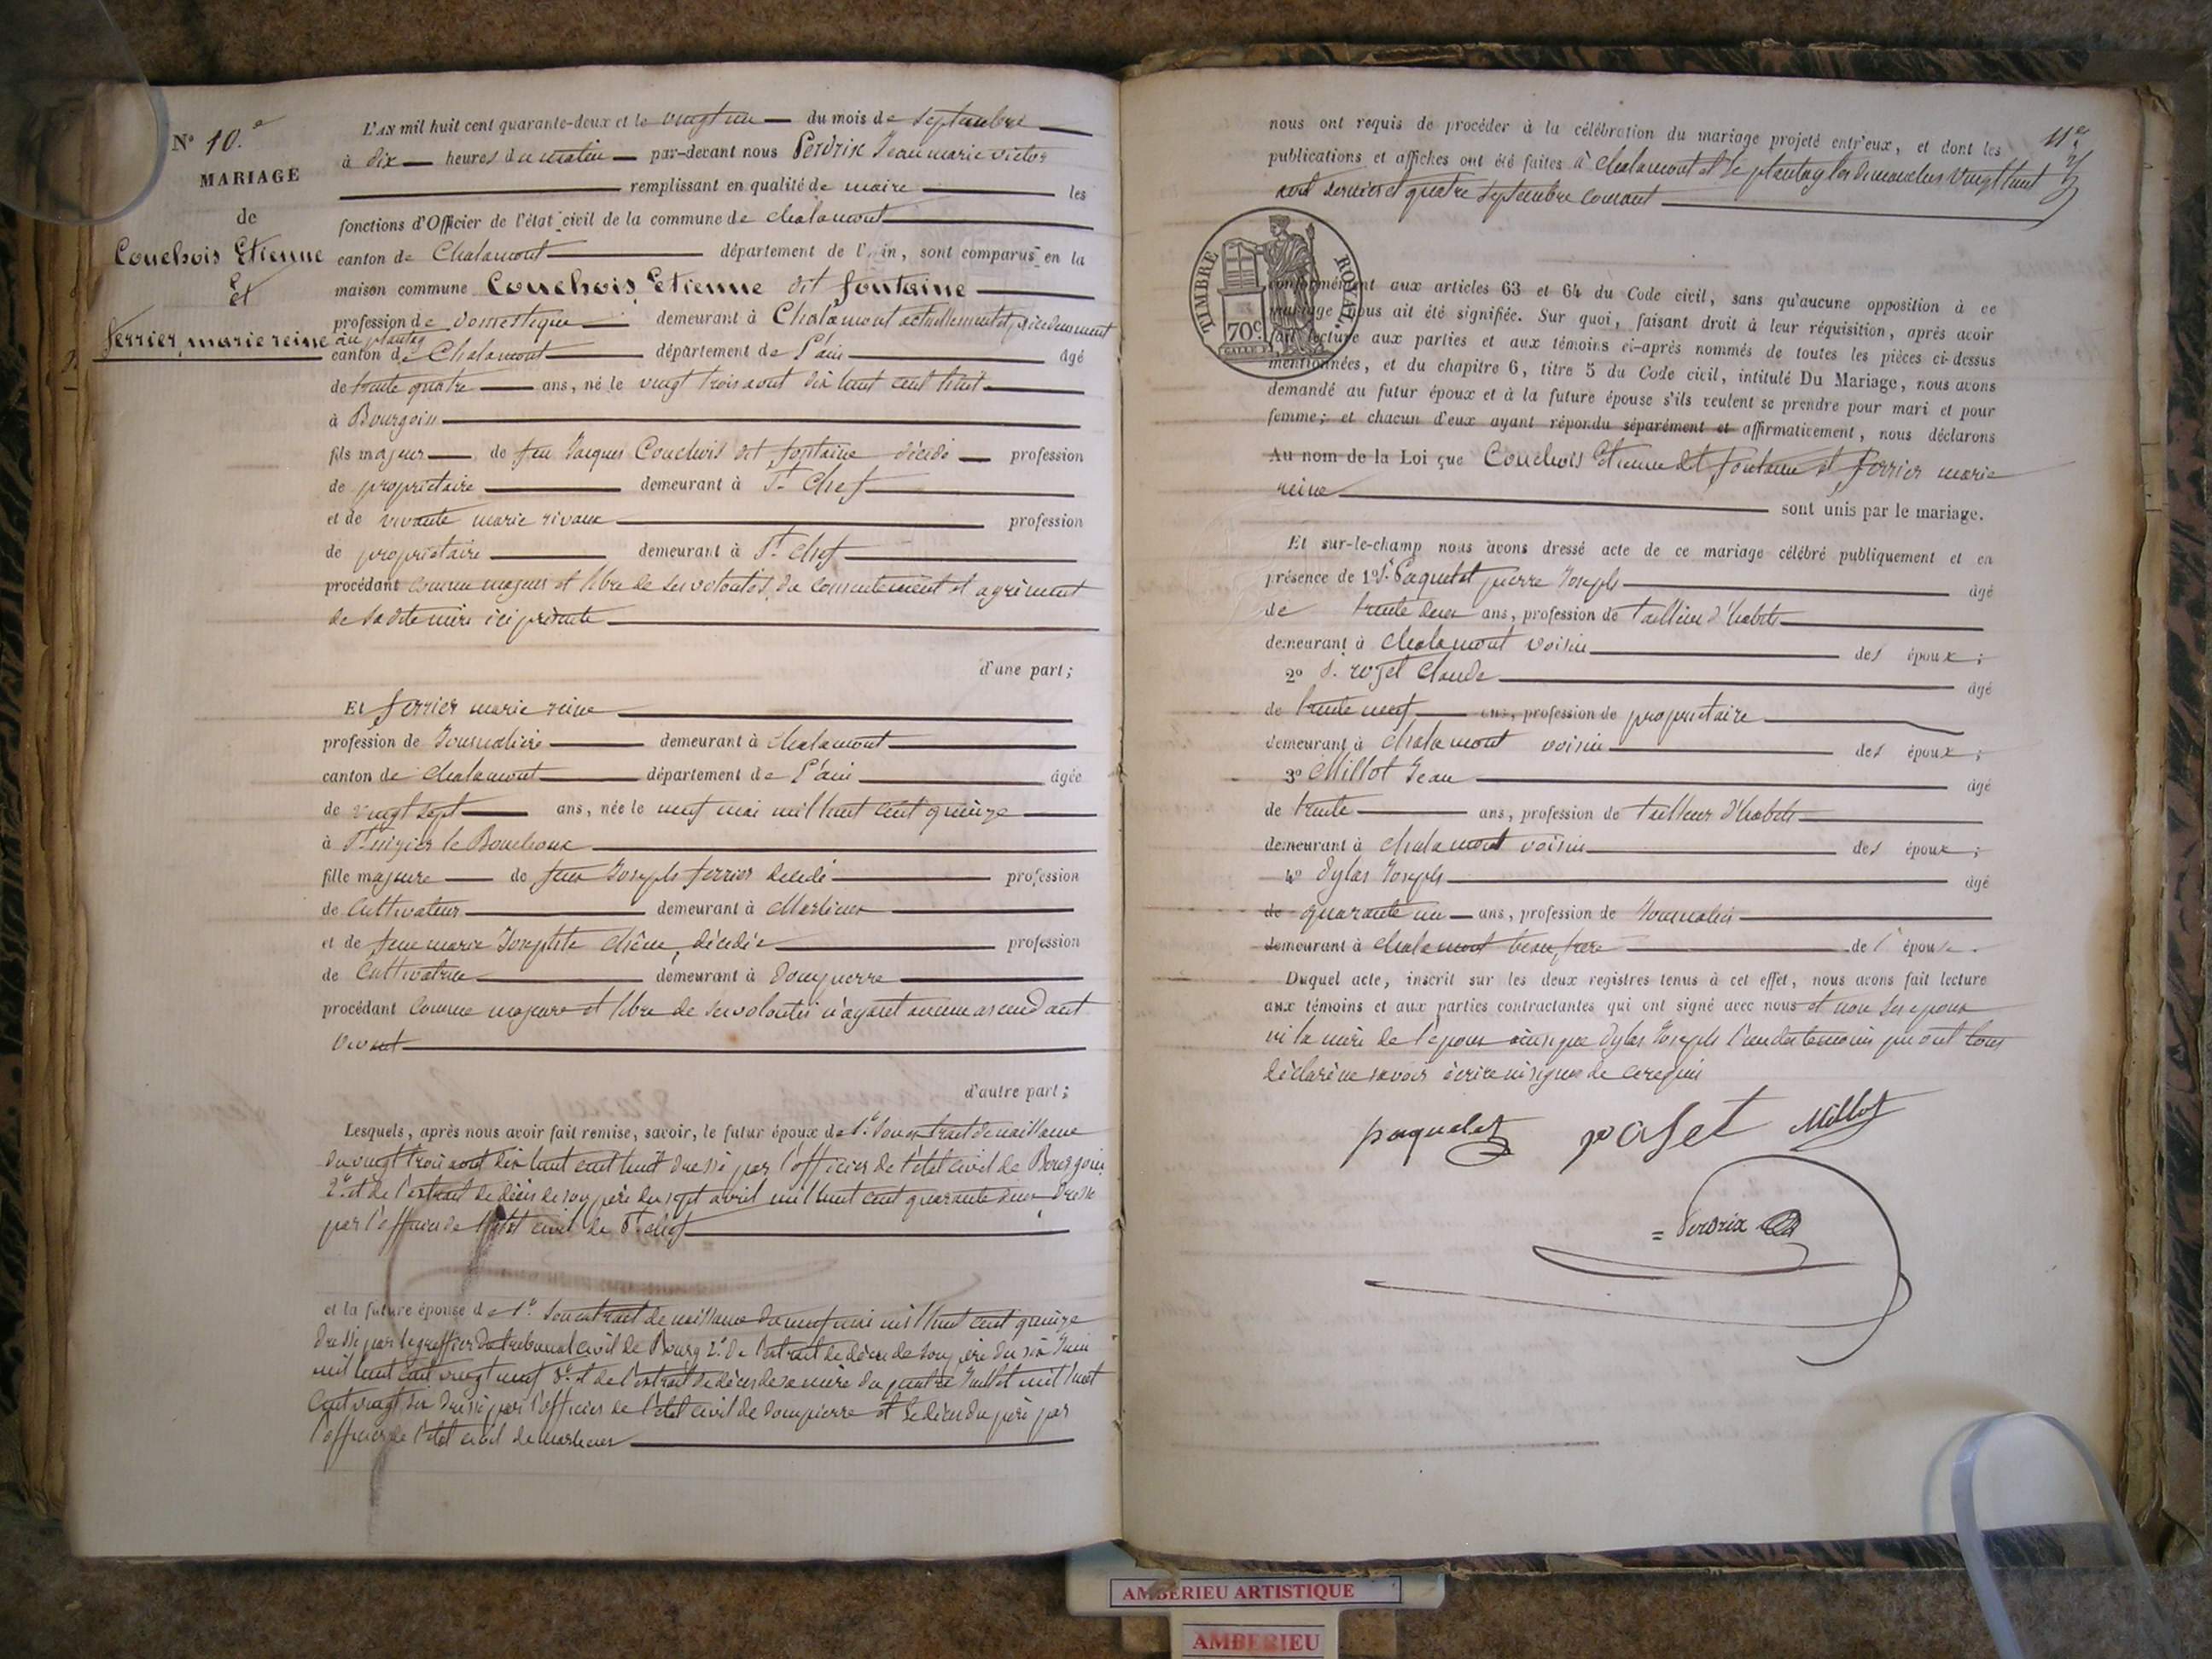 N° 10.e
MARIAGE
de
Couchois Etienne
et
ferrier, marie reine
L'AN mil huit cent quarante-deux et le vingt un du mois de septembre
à dix heures du matin par-devant nous Perdrix Jean marie victor
remplissant en qualité de maire les
fonctions d'Officier de l'état civil de la commune de chalamont
canton de Chalamont département de l'Ain, sont comparus en la
maison commune Couchois Etienne dit fontaine
profession de domestique demeurant à Chalamont actuellement et précédemment
au plantay
canton de Chalamont département de L'ain âgé
de trente quatre ans, né le vingt trois aout dix huit cent huit
à Bourgoin
fils majeur de feu Jacques Couchois dit fontaine décédé profession
de propriétaire demeurant à St. Chef
et de vivante marie rivaux profession
de propriétaire demeurant à St. chef
procédant comme majeur et libre de ses volontés, du consentement et agrément
de sa dite mère ici présente
d'une part;
Et ferrier marie reine
profession de Journalière demeurant à chalamont
canton de chalamont département de L'ain âgée
de vingt sept ans, née le neuf mai mil huit cent quinze
à St. nizier le Bouchoux
fille majeure de feu Joseph ferrier décédé profession
de Cultivateur demeurant à Marlieux
et de feue marie Josephte chêne, décédée profession
de Cultivatrice demeurant à Dompierre
procédant comme majeure et libre de ses volontés n'ayant aucun ascendant
vivant
d'autre part;
Lesquels, après nous avoir fait remise, savoir, le futur époux de 1.e son extrait de naissance
du vingt trois aout dix huit cent huit dressé par l'officier de l'état civil de Bourgoin
2.e et de l'extrait de décès de son père du sept avril mil huit cent quarante deux dressé
par l'officier de l'état civil de St. chef
et la future épouse de 1.e son extrait de naissance du neuf mai mil huit cent quinze
dressé par le greffier du tribunal civil de Bourg 2.e de l'extrait de décès de son père du six Juin
mil huit cent vingt neuf 3.e et de l'extrait de décès de sa mère du quatre Juillet mil huit
cent vingt six dressé par l'officier de l'état civil de Dompierre et le décès du père par
l'officier de l'état civil de marlieux
11.e
nous ont requis de procéder à la célébration du mariage projeté entr'eux, et dont les
publications et affiches ont été faites à chalamont et le plantay les dimanches vingt huit
aout dernier et quatre septembre courant
TIMBRE ROYAL.
70c.
conformément aux articles 63 et 64 du Code civil, sans qu'aucune opposition à ce
mariage nous ait été signifiée. Sur quoi, faisant droit à leur réquisition, après avoir
fait lecture aux parties et aux témoins ci-après nommés de toutes les pièces ci-dessus
mentionnées, et du chapitre 6, titre 5 du Code civil, intitulé Du Mariage, nous avons
demandé au futur époux et à la future épouse s'ils veulent se prendre pour mari et pour
femme; et chacun d'eux ayant répondu séparément et affirmativement, nous déclarons
Au nom de la Loi que Couchois Etienne dit fontaine et ferrier marie
reine sont unis par le mariage.
Et sur-le-champ nous avons dressé acte de ce mariage célébré publiquement et en
présence de 1° Sr. Paquelet pierre Joseph âgé
de trente deux ans, profession de tailleur d'habits
demeurant à chalamont voisin des époux;
2° S. rozet Claude âgé
de trente neuf ans, profession de propriétaire
demeurant à chalamont voisin des époux;
3° Millot Jean âgé
de trente ans, profession de tailleur d'habits
demeurant à chalamont voisin des époux;
4° Dylas Joseph âgé
de quarante un ans, profession de Journalier
demeurant à chalamont beau frère de l'épouse.
Duquel acte, inscrit sur les deux registres tenus à cet effet, nous avons fait lecture
aux témoins et aux parties contractantes qui ont signé avec nous et non les époux
ni la mère de l'époux ainsi que Dylas Joseph l'un des temoins qui ont tous
déclaré ne savoir écrire ni signer de ce requis
paquelet rozet Millot
Perdrix
AMBERIEU ARTISTIQUE
AMBERIEU